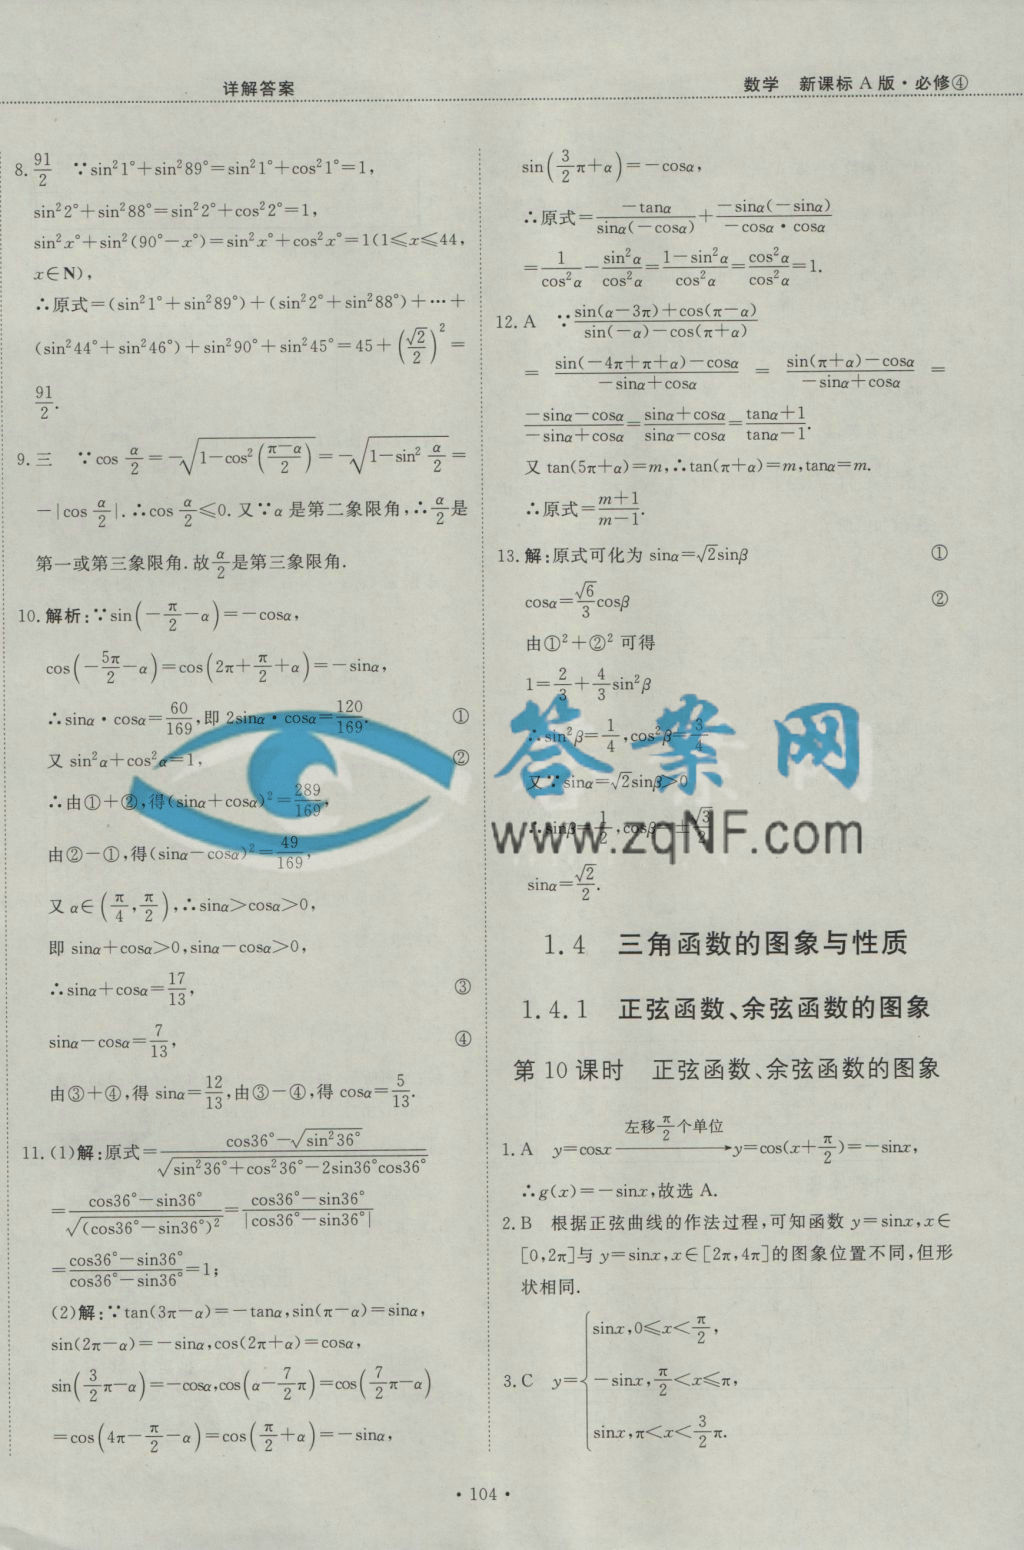 详解答案
数学 新课标 A 版·必修④
8. 91/2 ∵sin²1°+sin²89°=sin²1°+cos²1°=1,
sin²2°+sin²88°=sin²2°+cos²2°=1,
sin²x°+sin²(90°-x°)=sin²x°+cos²x°=1(1≤x≤44,
x∈N),
∴原式=(sin²1°+sin²89°)+(sin²2°+sin²88°)+…+
(sin²44°+sin²46°)+sin²90°+sin²45°=45+(√2/2)²=
91/2.
9. 三 ∵cos α/2=-√(1-cos²((π-α)/2))=-√(1-sin² α/2)=
-|cos α/2|.∴cos α/2≤0.又∵α是第二象限角,∴α/2是
第一或第三象限角.故α/2是第三象限角.
10. 解析:∵sin(-π/2-α)=-cosα,
cos(-5π/2-α)=cos(2π+π/2+α)=-sinα,
∴sinα·cosα=60/169,即 2sinα·cosα=120/169. ①
又 sin²α+cos²α=1, ②
∴由①+②,得(sinα+cosα)²=289/169,
由②-①,得(sinα-cosα)²=49/169,
又 α∈(π/4,π/2),∴sinα>cosα>0,
即 sinα+cosα>0,sinα-cosα>0,
∴sinα+cosα=17/13, ③
sinα-cosα=7/13, ④
由③+④,得 sinα=12/13,由③-④,得 cosα=5/13.
11. (1)解:原式=(cos36°-√(sin²36°))/√(sin²36°+cos²36°-2sin36°cos36°)
=(cos36°-sin36°)/√((cos36°-sin36°)²)=(cos36°-sin36°)/|cos36°-sin36°|
=(cos36°-sin36°)/(cos36°-sin36°)=1;
(2)解:∵tan(3π-α)=-tanα,sin(π-α)=sinα,
sin(2π-α)=-sinα,cos(2π+α)=cosα,
sin(3/2π-α)=-cosα,cos(α-7/2π)=cos(7/2π-α)
=cos(4π-π/2-α)=cos(π/2+α)=-sinα,
sin(3/2π+α)=-cosα,
∴原式=-tanα/(sinα(-cosα))+(-sinα(-sinα))/(-cosα·cosα)
=1/cos²α-sin²α/cos²α=(1-sin²α)/cos²α=cos²α/cos²α=1.
12. A ∵(sin(α-3π)+cos(π-α))/(sin(-α)-cos(π+α))
=(sin(-4π+π+α)-cosα)/(-sinα+cosα)=(sin(π+α)-cosα)/(-sinα+cosα)=
(-sinα-cosα)/(-sinα+cosα)=(sinα+cosα)/(sinα-cosα)=(tanα+1)/(tanα-1).
又 tan(5π+α)=m,∴tan(π+α)=m,tanα=m.
∴原式=(m+1)/(m-1).
13. 解:原式可化为 sinα=√2sinβ ①
cosα=√6/3cosβ ②
由①²+②² 可得
1=2/3+4/3sin²β
∴sin²β=1/4,cos²β=3/4
又∵sinα=√2sinβ>0
∴sinβ=1/2,cosβ=±√3/2
sinα=√2/2.
答案网
www.zqNF.com
1.4 三角函数的图象与性质
1.4.1 正弦函数、余弦函数的图象
第 10 课时 正弦函数、余弦函数的图象
1. A y=cosx 左移π/2个单位→ y=cos(x+π/2)=-sinx,
∴g(x)=-sinx,故选 A.
2. B 根据正弦曲线的作法过程,可知函数 y=sinx,x∈
[0,2π]与 y=sinx,x∈[2π,4π]的图象位置不同,但形
状相同.
3. C y={ sinx,0≤x<π/2,
-sinx,π/2<x≤π,
sinx,π<x<3/2π.
· 104 ·